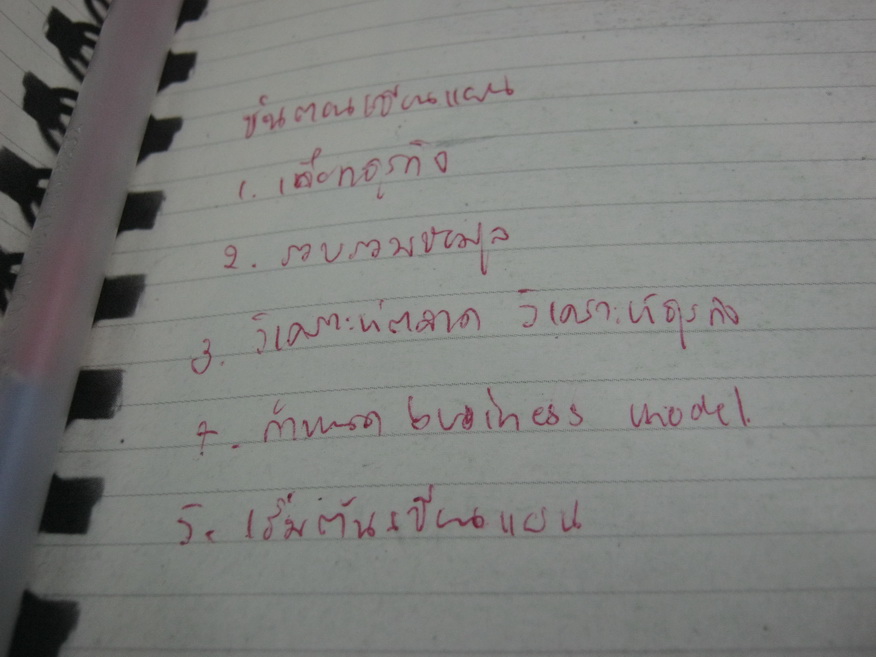 ขั้นตอนเขียนแผน
1. เลือกธุรกิจ
2. รวบรวมข้อมูล
3. วิเคราะห์ตลาด วิเคราะห์ธุรกิจ
4. กำหนด business model.
5. เริ่มต้นเขียนแผน